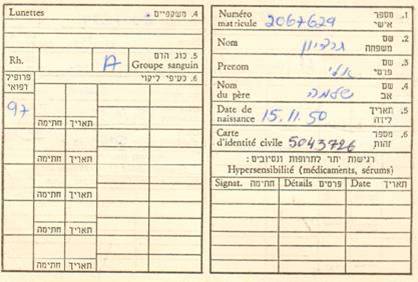 Lunettes 4. משקפיים .
Rh. A 5. סוג הדם
Groupe sanguin
פרופיל
רפואי 6. סעיפי ליקוי
97
תאריך חתימה
תאריך חתימה
תאריך חתימה
תאריך חתימה
תאריך חתימה
Numéro
matricule 2067629 1. מספר
אישי
Nom 2. שם
משפחה
Prenom אלי 3. שם
פרטי
Nom
du père שלמה 4. שם
אב
Date de
naissance 15.11.50 5. תאריך
לידה
Carte
d'identité civile 5043726 6. מספר
זהות
רגישות יתר לתרופות ונסיובים:
Hypersensibilité (médicaments, sérums)
Signat. חתימה Détails פרטים Date תאריך